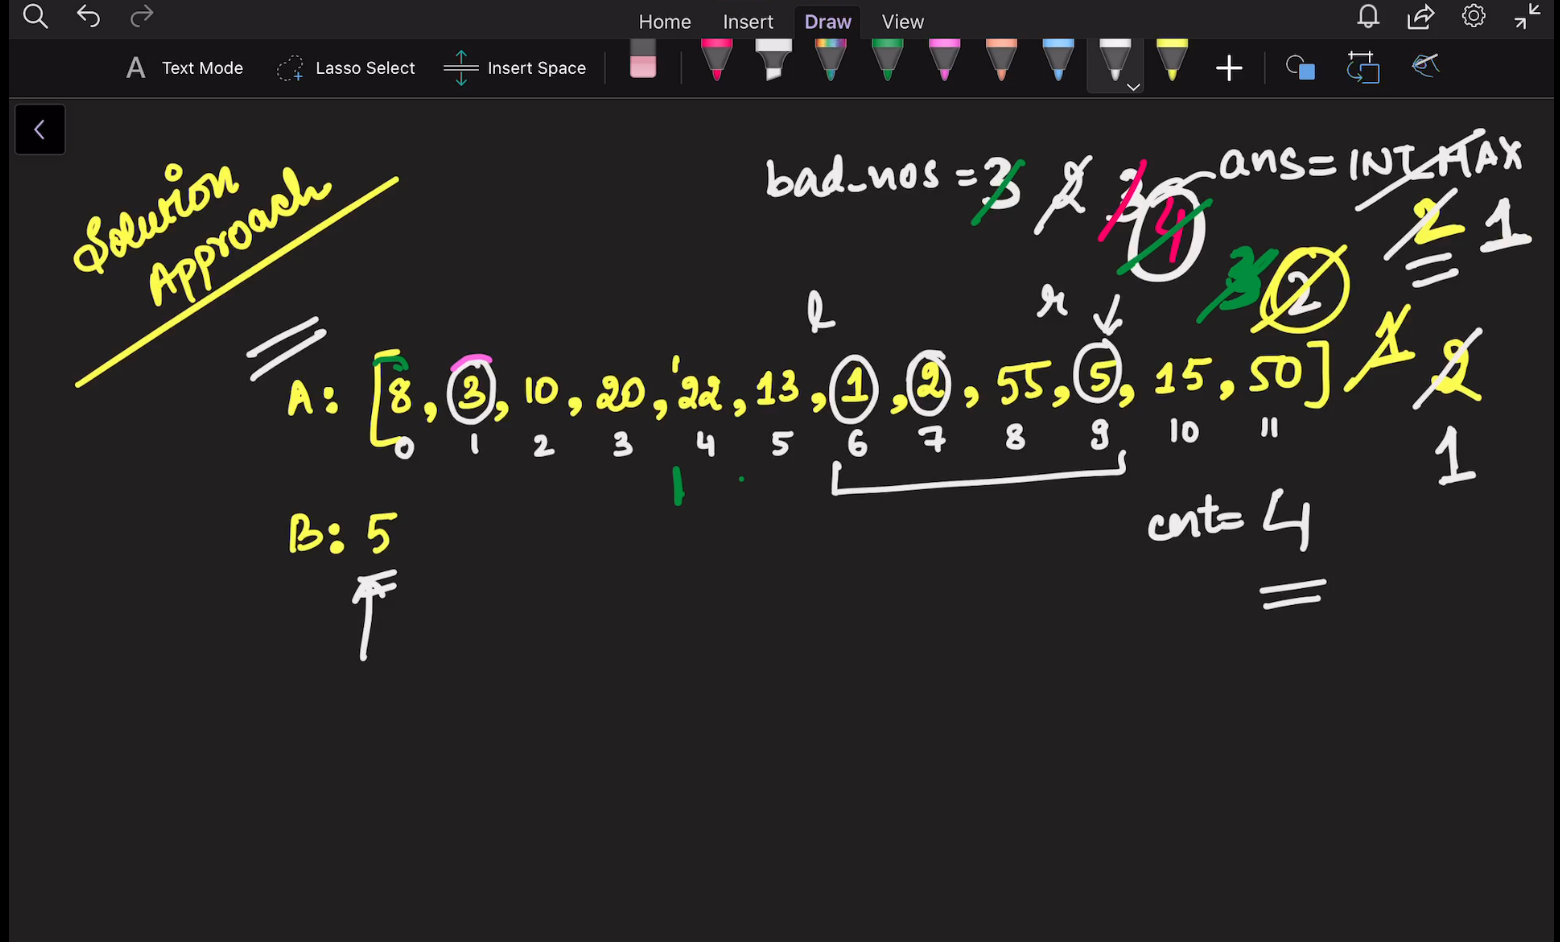 Home Insert Draw View
A Text Mode Lasso Select Insert Space
Solution
Approach
bad_nos = 3 2 3 4 3 2 1 2 1
ans = INT_MAX
2 1
l r
A: [8, 3, 10, 20, 22, 13, 1, 2, 55, 5, 15, 50]
0 1 2 3 4 5 6 7 8 9 10 11
B: 5
cnt = 4